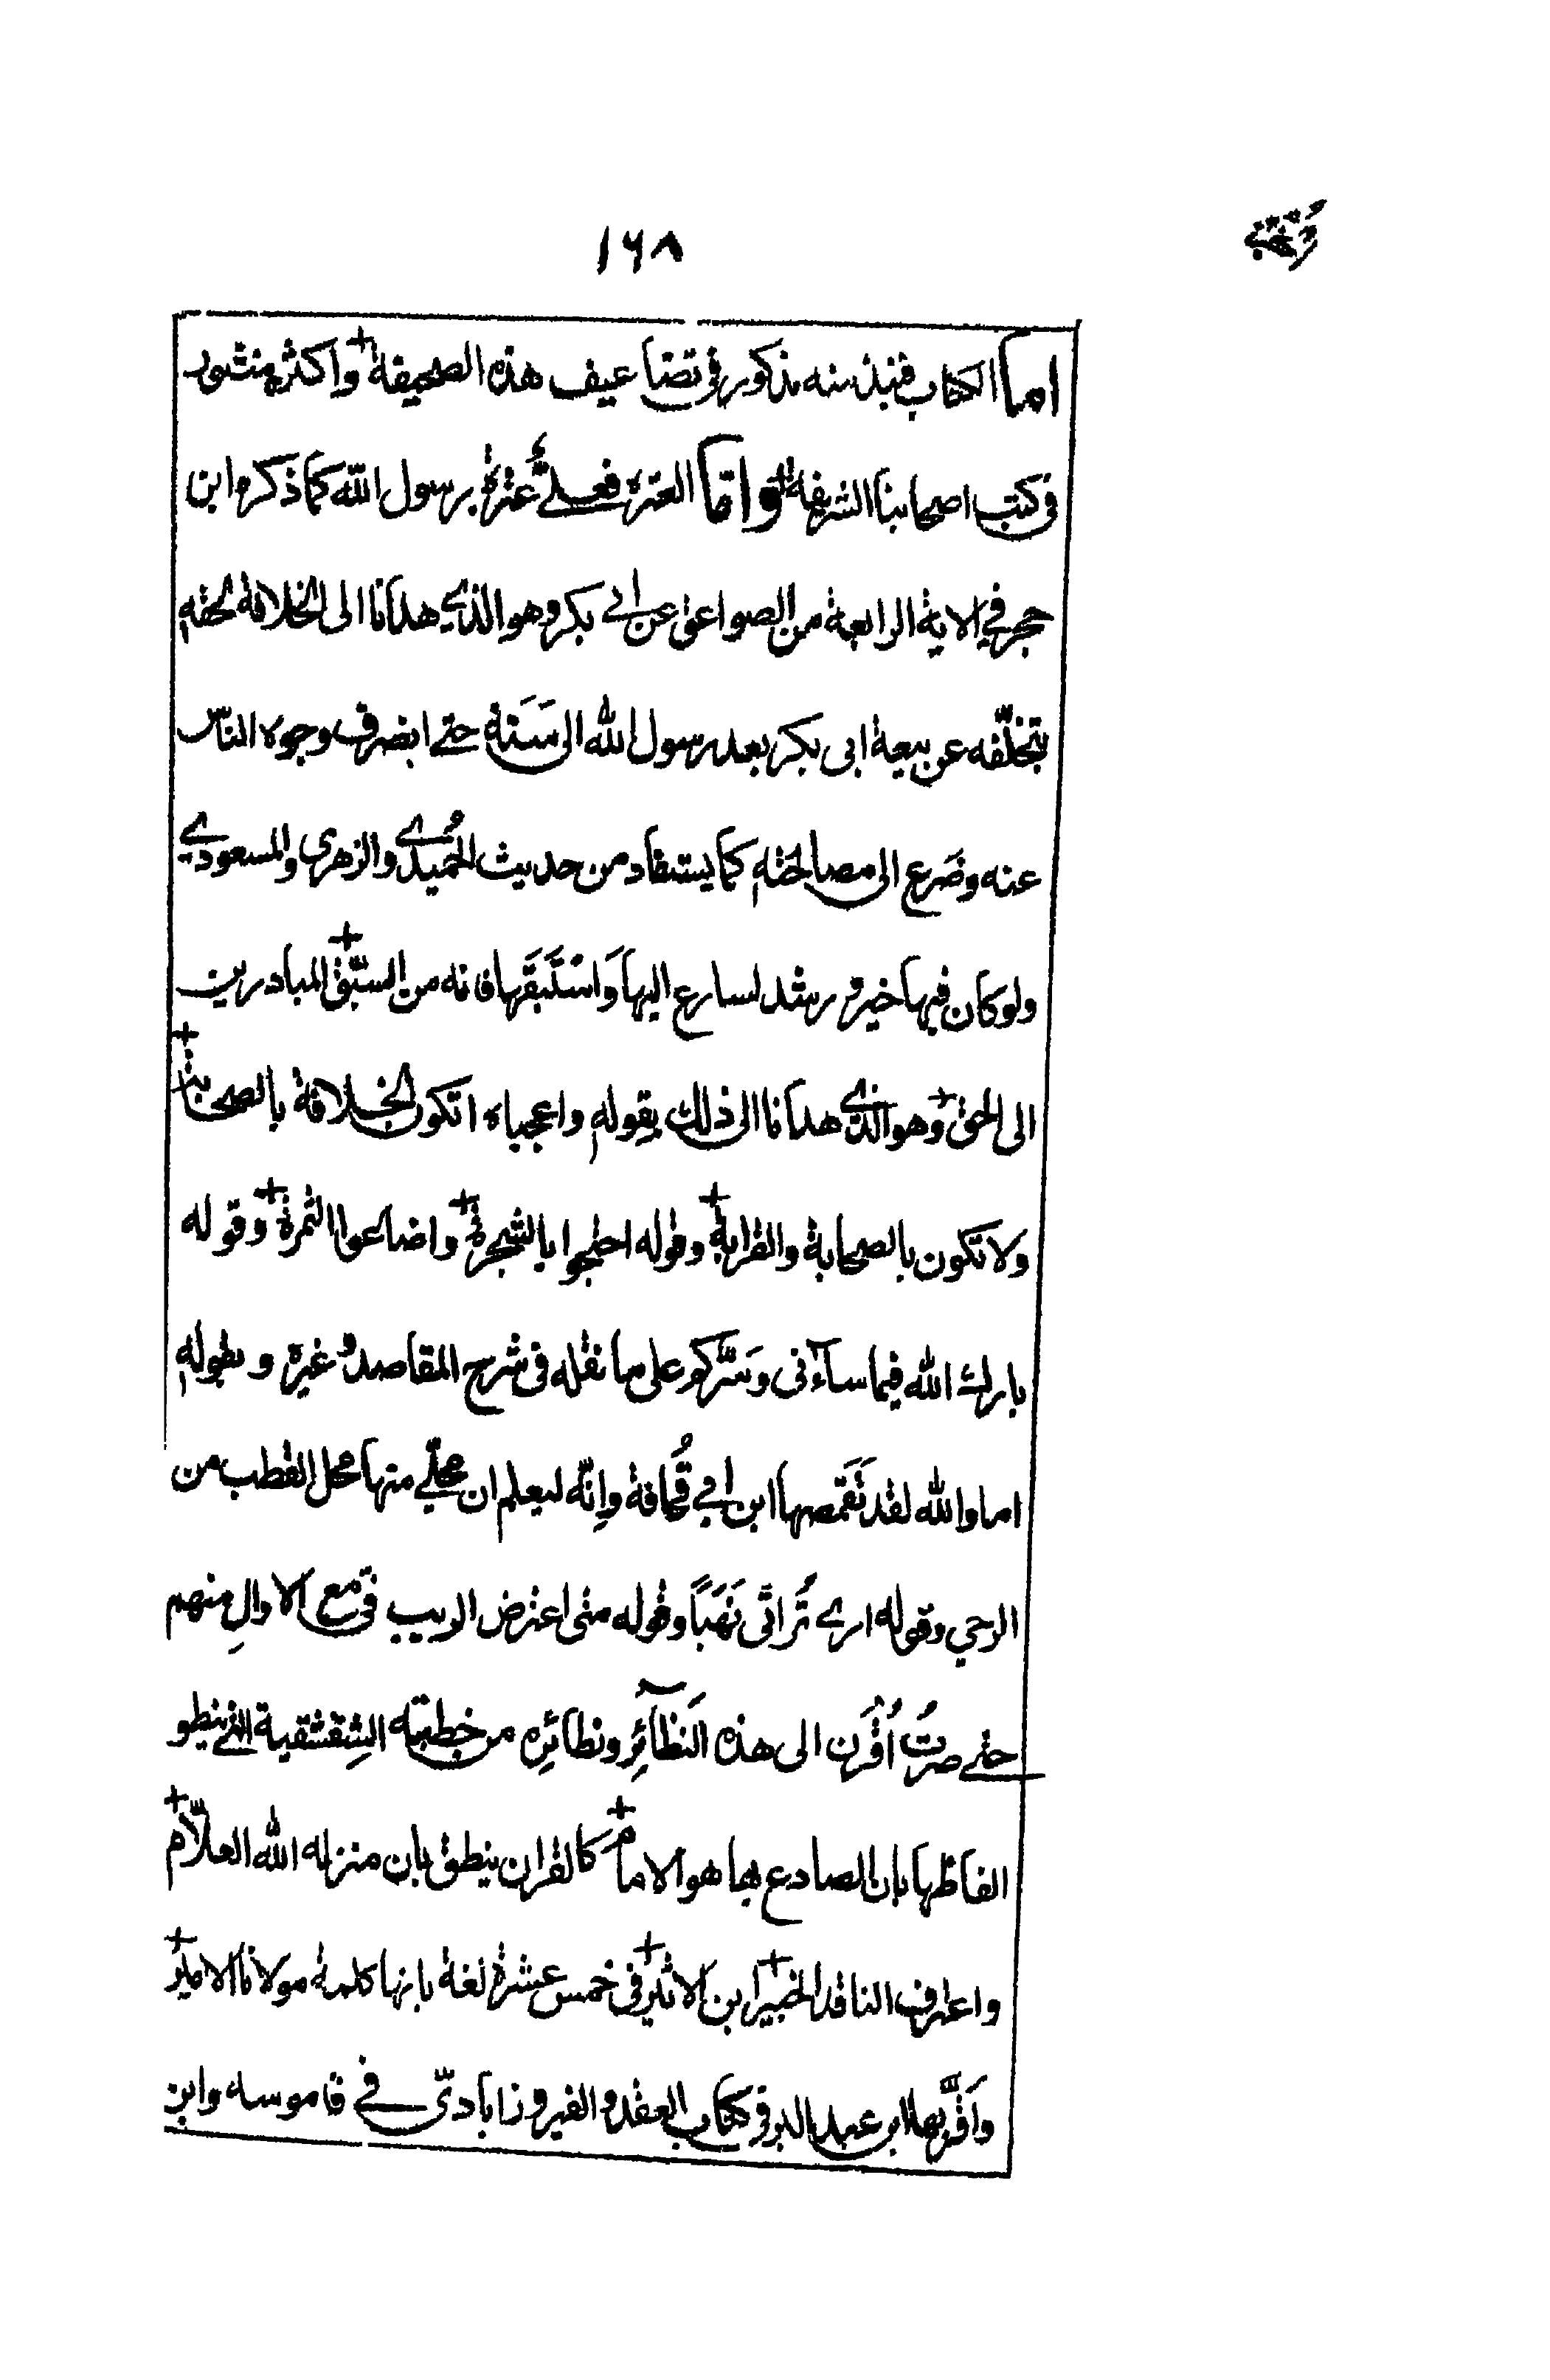 ١٦٨
اما الكتاب فنبذ منه مذكور في تضاعيف هذه الصحيفة واكثره منثور
في كتب اصحابنا الشريفة واما العترة فعلىٌّ عترة رسول الله كما ذكره ابن
حجر في الاية الرابعة من الصواعق عن ابي بكر وهو الذي هدانا الى الخلافة الحقه
بتخلّفه عن بيعة ابى بكر بعد رسول الله الى سَنَة حتى انصرف وجوه الناس
عنه وضَرع الى مصالحته كما يستفاد من حديث الحُميدي والزهرى والمسعودي
ولو كان فيها خير و رشد لسارع اليها وَاسْتَبَقَها فانه من السبّق المبادرين
الى الحق وهو الذي هدانا الى ذلك بقوله واعجباه اتكون الخلافة بالصحابة
ولا تكون بالصحابة والقرابة وقوله احتجوا بالشجرة واضاعوا الثمرة وقوله
بارك الله فيما ساءنى وسَّركم على ما نقله فى شرح المقاصد وغيره وبقوله
اما والله لقد تَقَمَّصها ابن ابي قُحافة وإنّه ليعلم ان محلّي منها محل القطب من
الرحي وقوله ارى تُراثى نَهَباً وقوله متى اعترض الريب فيّ مع الاوالِ منهم
حتى صرتُ اُقْرَن الى هذه النَظآئِر ونظائره من خطبته الشِقشقية التي ينطو
الفاظها بان الصادع بها هو الامام كالقران ينطق بان منزله الله العلاّم
واعترف الناقد الخبير ابن الاثير فى خمس عشرة لغة بانها كلمة مولانا الامير
وَاَقَرَّ بها ابن عبد البر فى كتاب العقد والفيروزابادىّ في قاموسه وابن